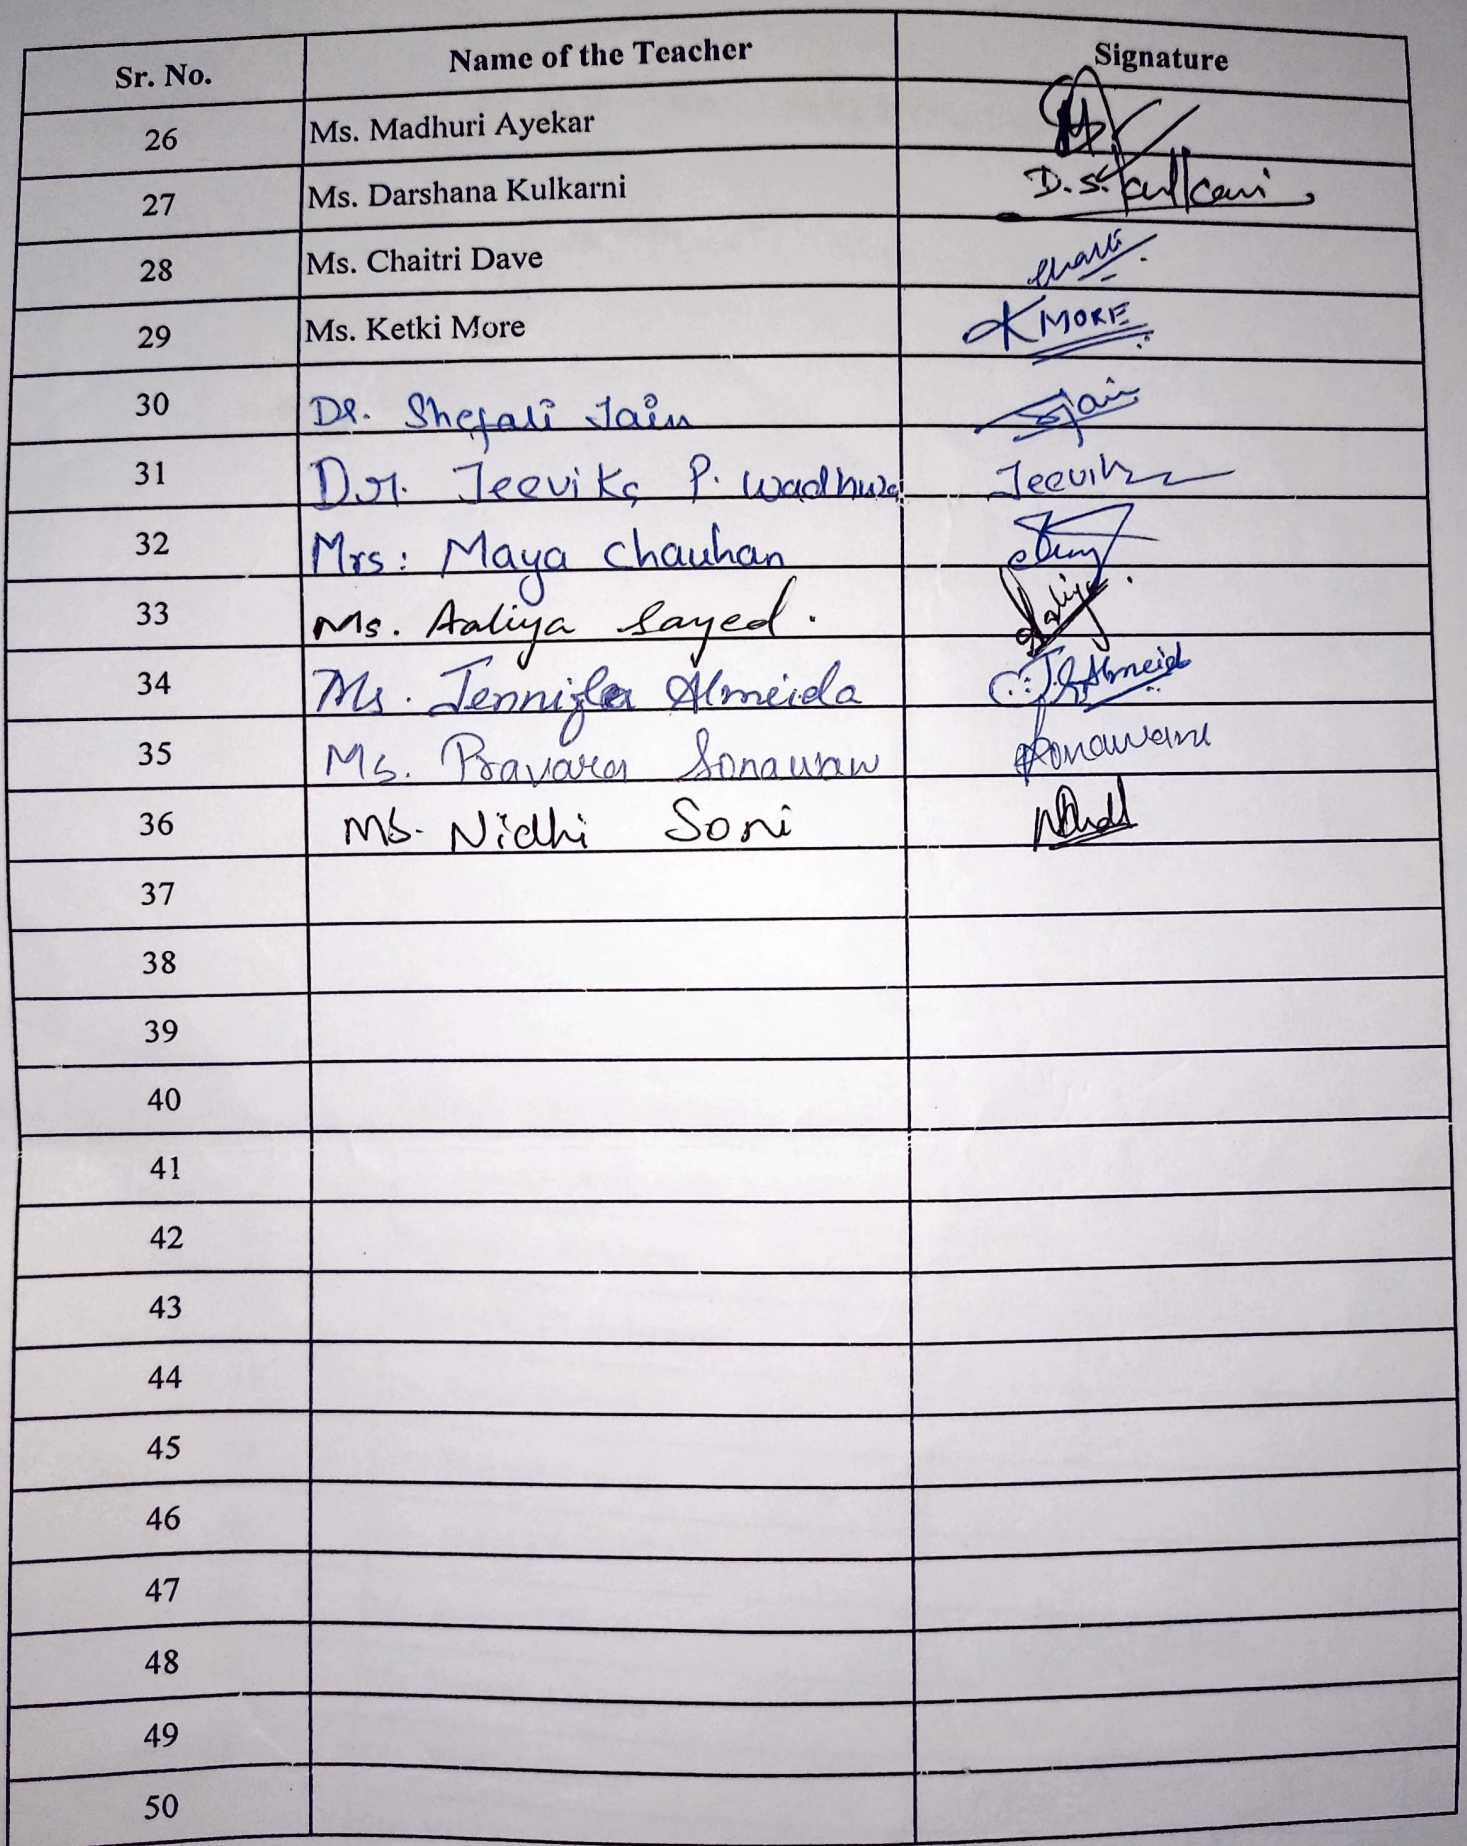 Sr. No. Name of the Teacher Signature
26 Ms. Madhuri Ayekar
27 Ms. Darshana Kulkarni D.S. Kulkarni
28 Ms. Chaitri Dave
29 Ms. Ketki More K MORE
30 Dr. Shefali Jain SJain
31 Dr. Jeevika P. Wadhwa Jeevika
32 Mrs: Maya Chauhan
33 Ms. Aaliya Sayed. Aaliya
34 Ms. Jennifer Almeida Almeida
35 Ms. Pravara Sonawane Sonawane
36 Ms. Nidhi Soni
37
38
39
40
41
42
43
44
45
46
47
48
49
50